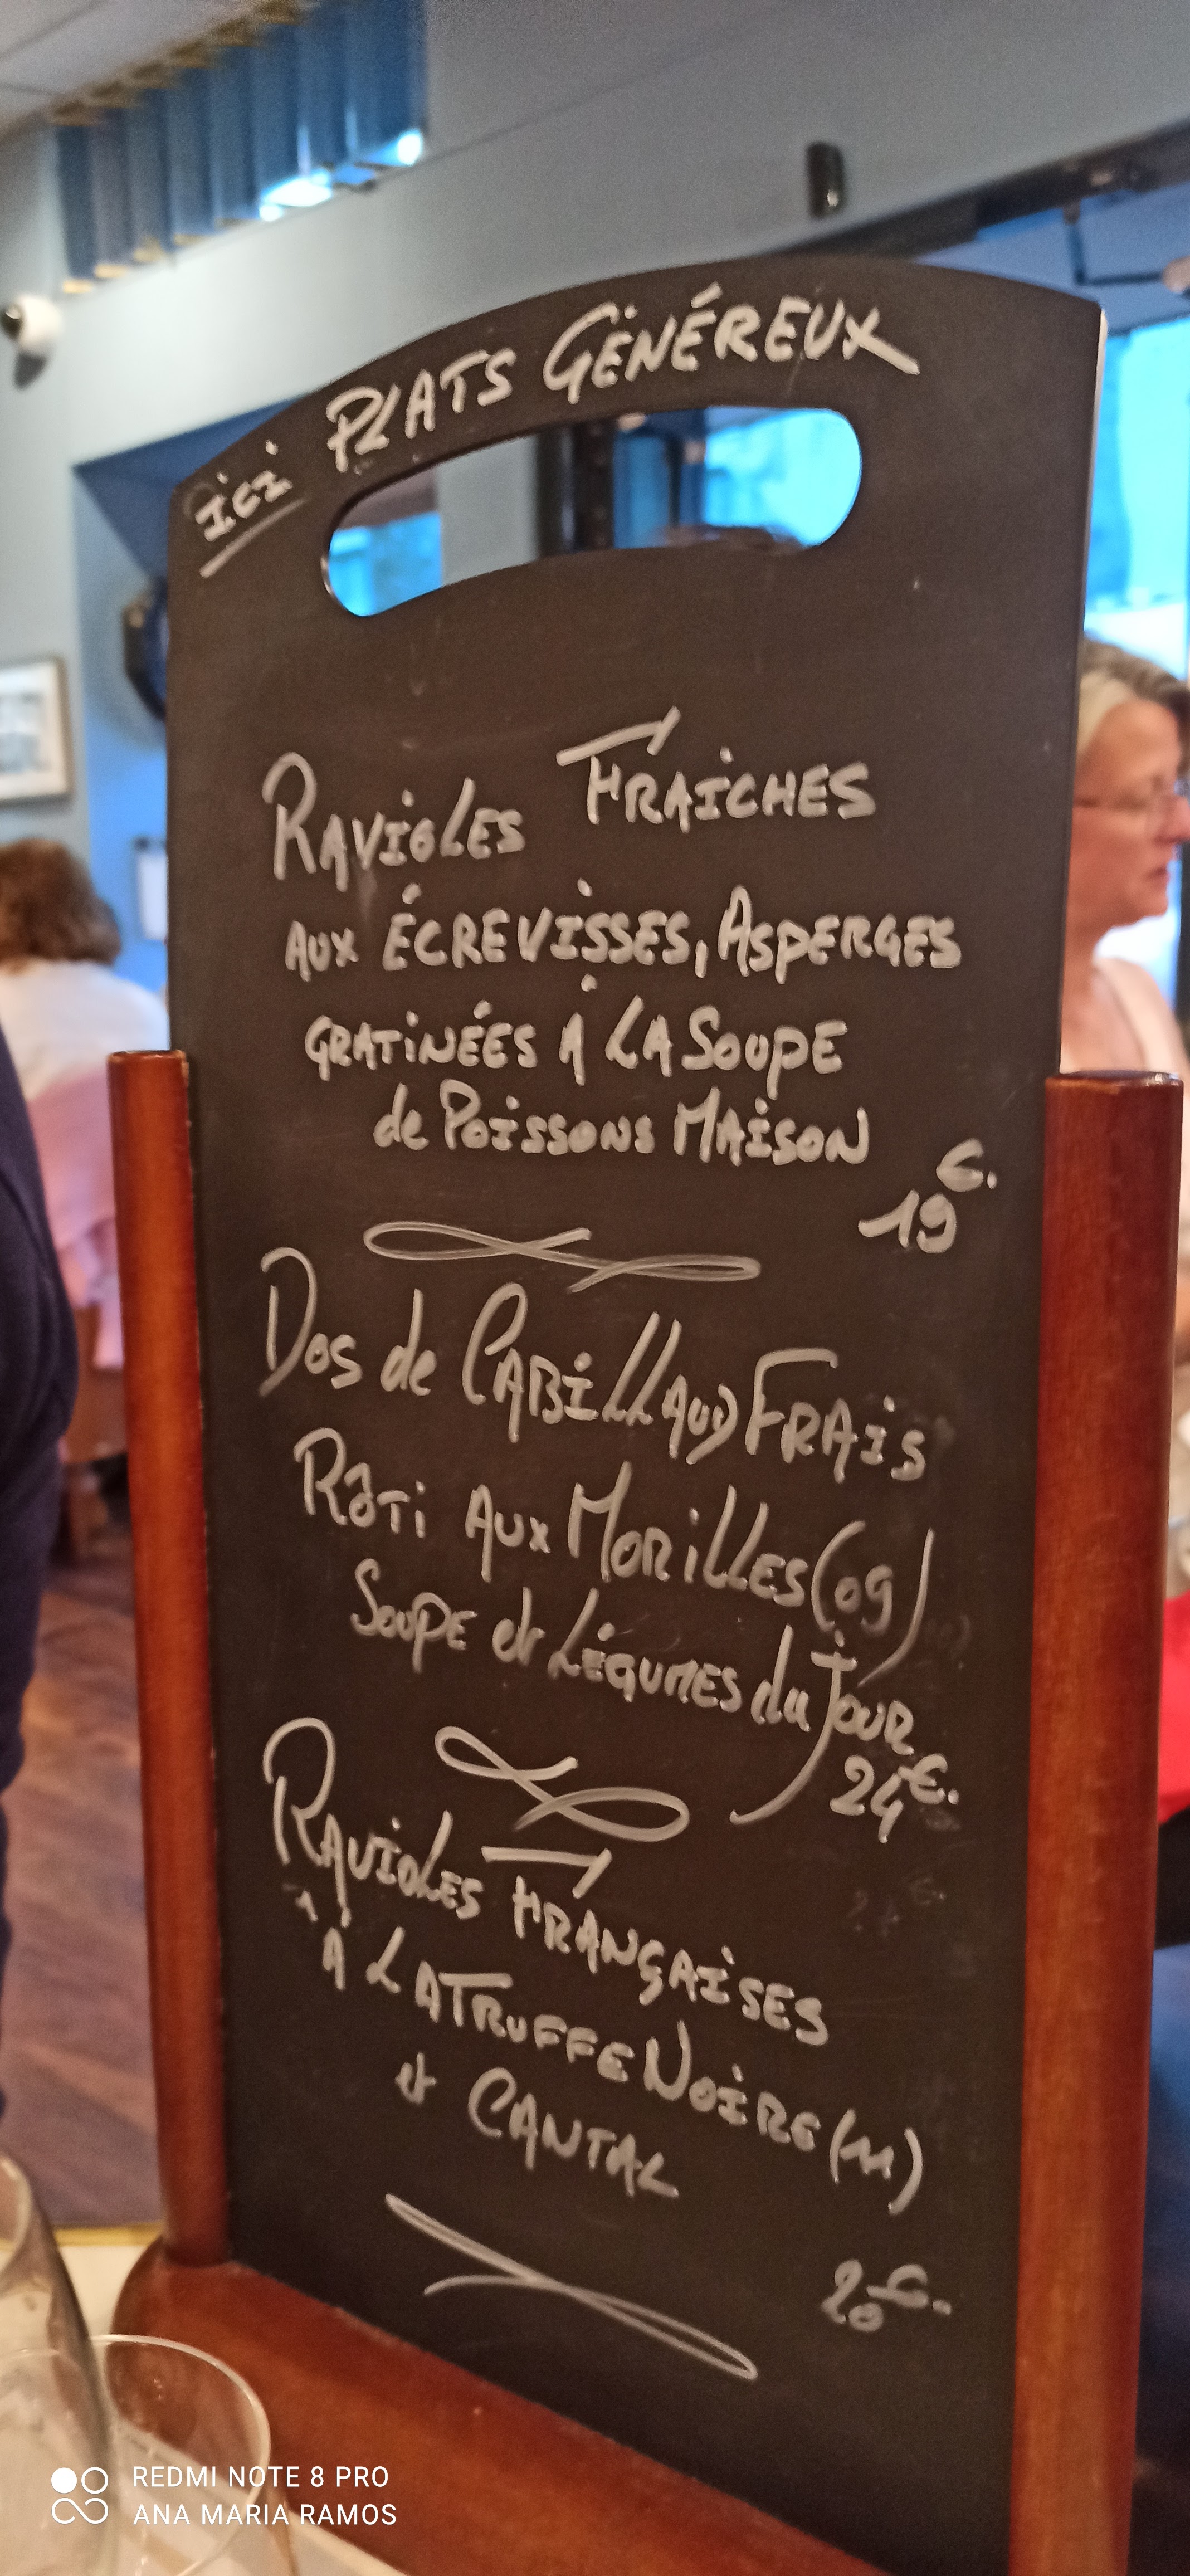 ici PLATS GÉNÉREUX
RAVIOLES FRAICHES
AUX ÉCREVISSES, ASPERGES
GRATINÉES À LA SOUPE
de POISSONS MAISON
19€.
DOS de CABILLAUD FRAIS
RôTi AUX MORiLLES (09)
SOUPE et LÉGUMES du JOUR
24€.
RAVIOLES FRANÇAISES
À LA TRUFFE NOIRE (M)
et CANTAL
20€.
REDMI NOTE 8 PRO
ANA MARIA RAMOS